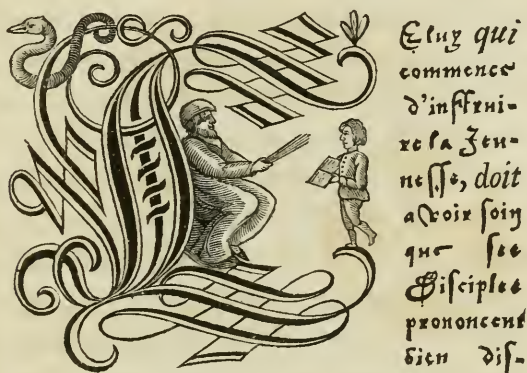 C
Eluy qui
commence
d'instrui-
re la Jeu-
nesse, doit
avoir soin
que ses
Disciples
prononcent
bien dis-